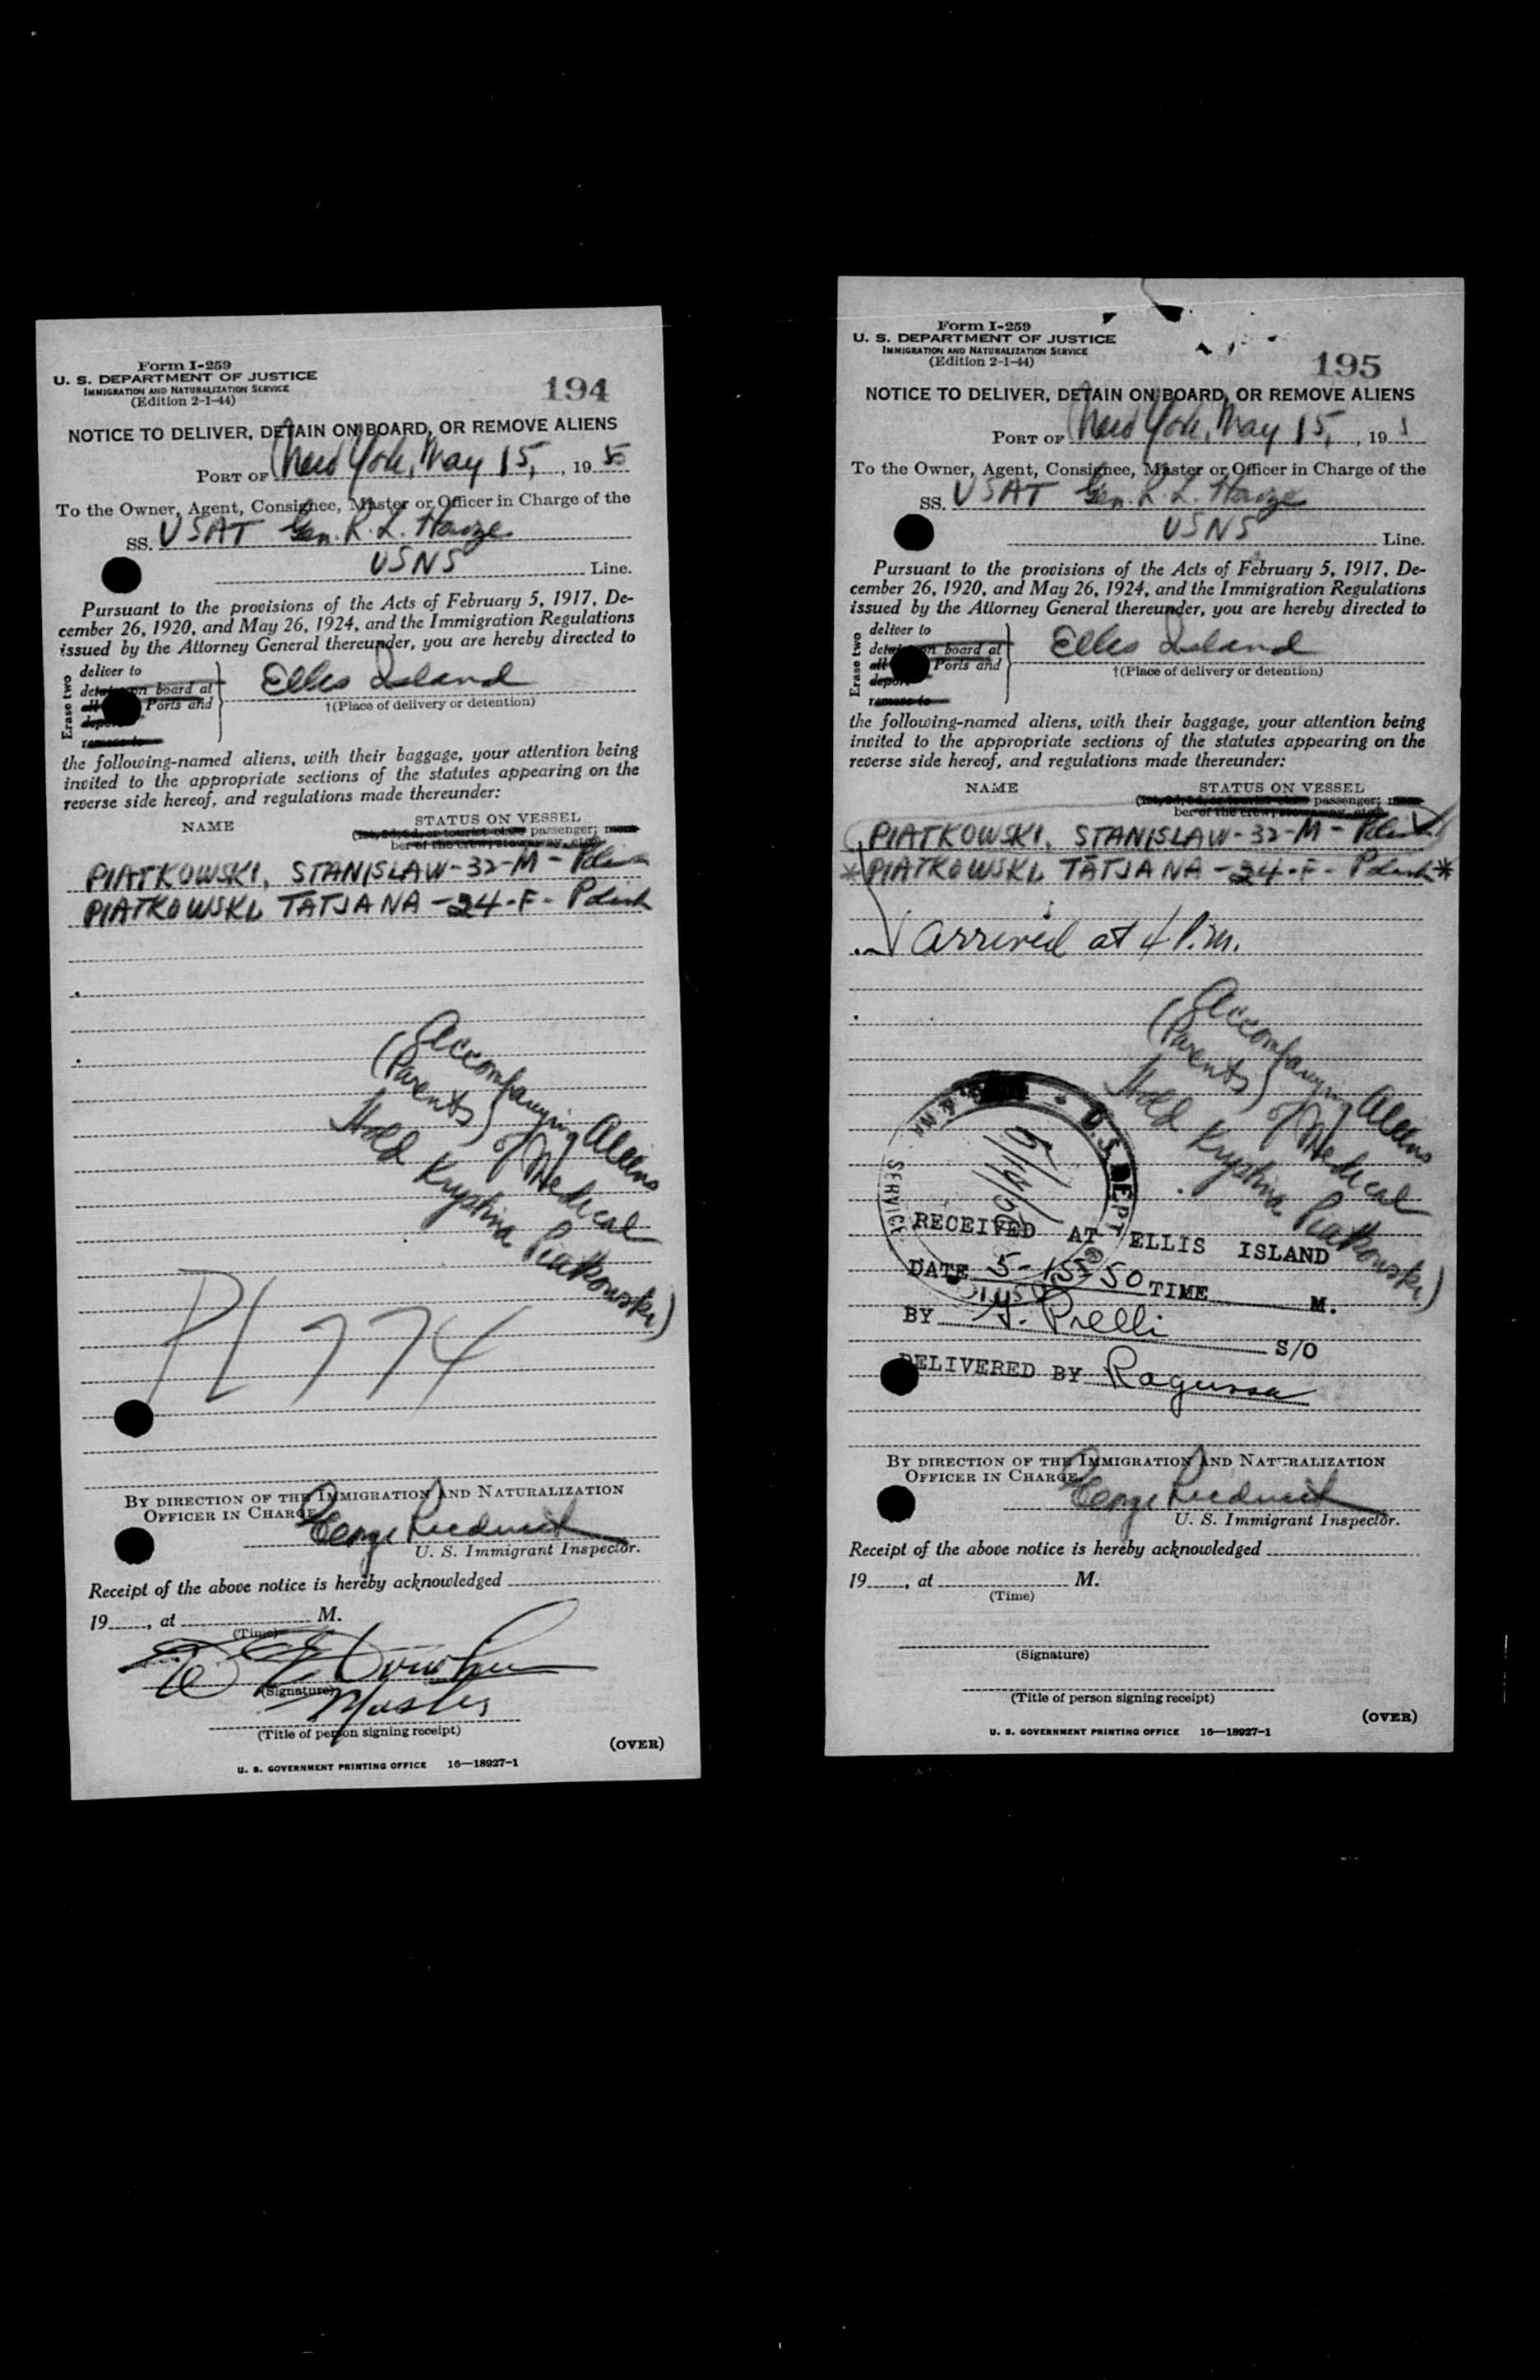 Form I-259
U. S. DEPARTMENT OF JUSTICE
IMMIGRATION AND NATURALIZATION SERVICE
(Edition 2-1-44)
194
NOTICE TO DELIVER, DETAIN ON BOARD, OR REMOVE ALIENS
PORT OF New York, May 15, , 19 50
To the Owner, Agent, Consignee, Master or Officer in Charge of the
SS. USAT Gen. R. L. Howze
USNS Line.
Pursuant to the provisions of the Acts of February 5, 1917, De-
cember 26, 1920, and May 26, 1924, and the Immigration Regulations
issued by the Attorney General thereunder, you are hereby directed to
Erase two
deliver to
detain on board at
all Ports and
deport
remove to
Ellis Island
†(Place of delivery or detention)
the following-named aliens, with their baggage, your attention being
invited to the appropriate sections of the statutes appearing on the
reverse side hereof, and regulations made thereunder:
NAME
STATUS ON VESSEL
(1st, 2d, 3d, or tourist class passenger; mem-
ber of the crew, stowaway, etc.)
PIATKOWSKI, STANISLAW-32-M-Polish
PIATKOWSKI, TATJANA-24-F-Polish
Accompanying Aliens
(Parents) of Medical
Hold Krystina Piatkowski)
774
BY DIRECTION OF THE IMMIGRATION AND NATURALIZATION
OFFICER IN CHARGE
George
U. S. Immigrant Inspector.
Receipt of the above notice is hereby acknowledged
19 , at M.
(Time)
(Signature)
Master
(Title of person signing receipt)
(OVER)
U. S. GOVERNMENT PRINTING OFFICE 16—18927-1
Form I-259
U. S. DEPARTMENT OF JUSTICE
IMMIGRATION AND NATURALIZATION SERVICE
(Edition 2-1-44)
195
NOTICE TO DELIVER, DETAIN ON BOARD, OR REMOVE ALIENS
PORT OF New York, May 15, , 19
To the Owner, Agent, Consignee, Master or Officer in Charge of the
SS. USAT Gen. R. L. Howze
USNS Line.
Pursuant to the provisions of the Acts of February 5, 1917, De-
cember 26, 1920, and May 26, 1924, and the Immigration Regulations
issued by the Attorney General thereunder, you are hereby directed to
Erase two
deliver to
detain on board at
all Ports and
deport
remove to
Ellis Island
†(Place of delivery or detention)
the following-named aliens, with their baggage, your attention being
invited to the appropriate sections of the statutes appearing on the
reverse side hereof, and regulations made thereunder:
NAME
STATUS ON VESSEL
(1st, 2d, 3d, or tourist class passenger; mem-
ber of the crew, stowaway, etc.)
PIATKOWSKI, STANISLAW-32-M-Polish
*PIATKOWSKI, TATJANA-24-F-Polish*
arrived at 4 P.M.
Accompanying Aliens
(Parents) of Medical
Hold Krystina Piatkowski)
U.S. DEPT
SERVICE
RECEIVED AT ELLIS ISLAND
DATE 5-15-50 TIME M.
BY Prelli S/O
DELIVERED BY Ragussa
BY DIRECTION OF THE IMMIGRATION AND NATURALIZATION
OFFICER IN CHARGE
George
U. S. Immigrant Inspector.
Receipt of the above notice is hereby acknowledged
19 , at M.
(Time)
(Signature)
(Title of person signing receipt)
(OVER)
U. S. GOVERNMENT PRINTING OFFICE 16—18927-1